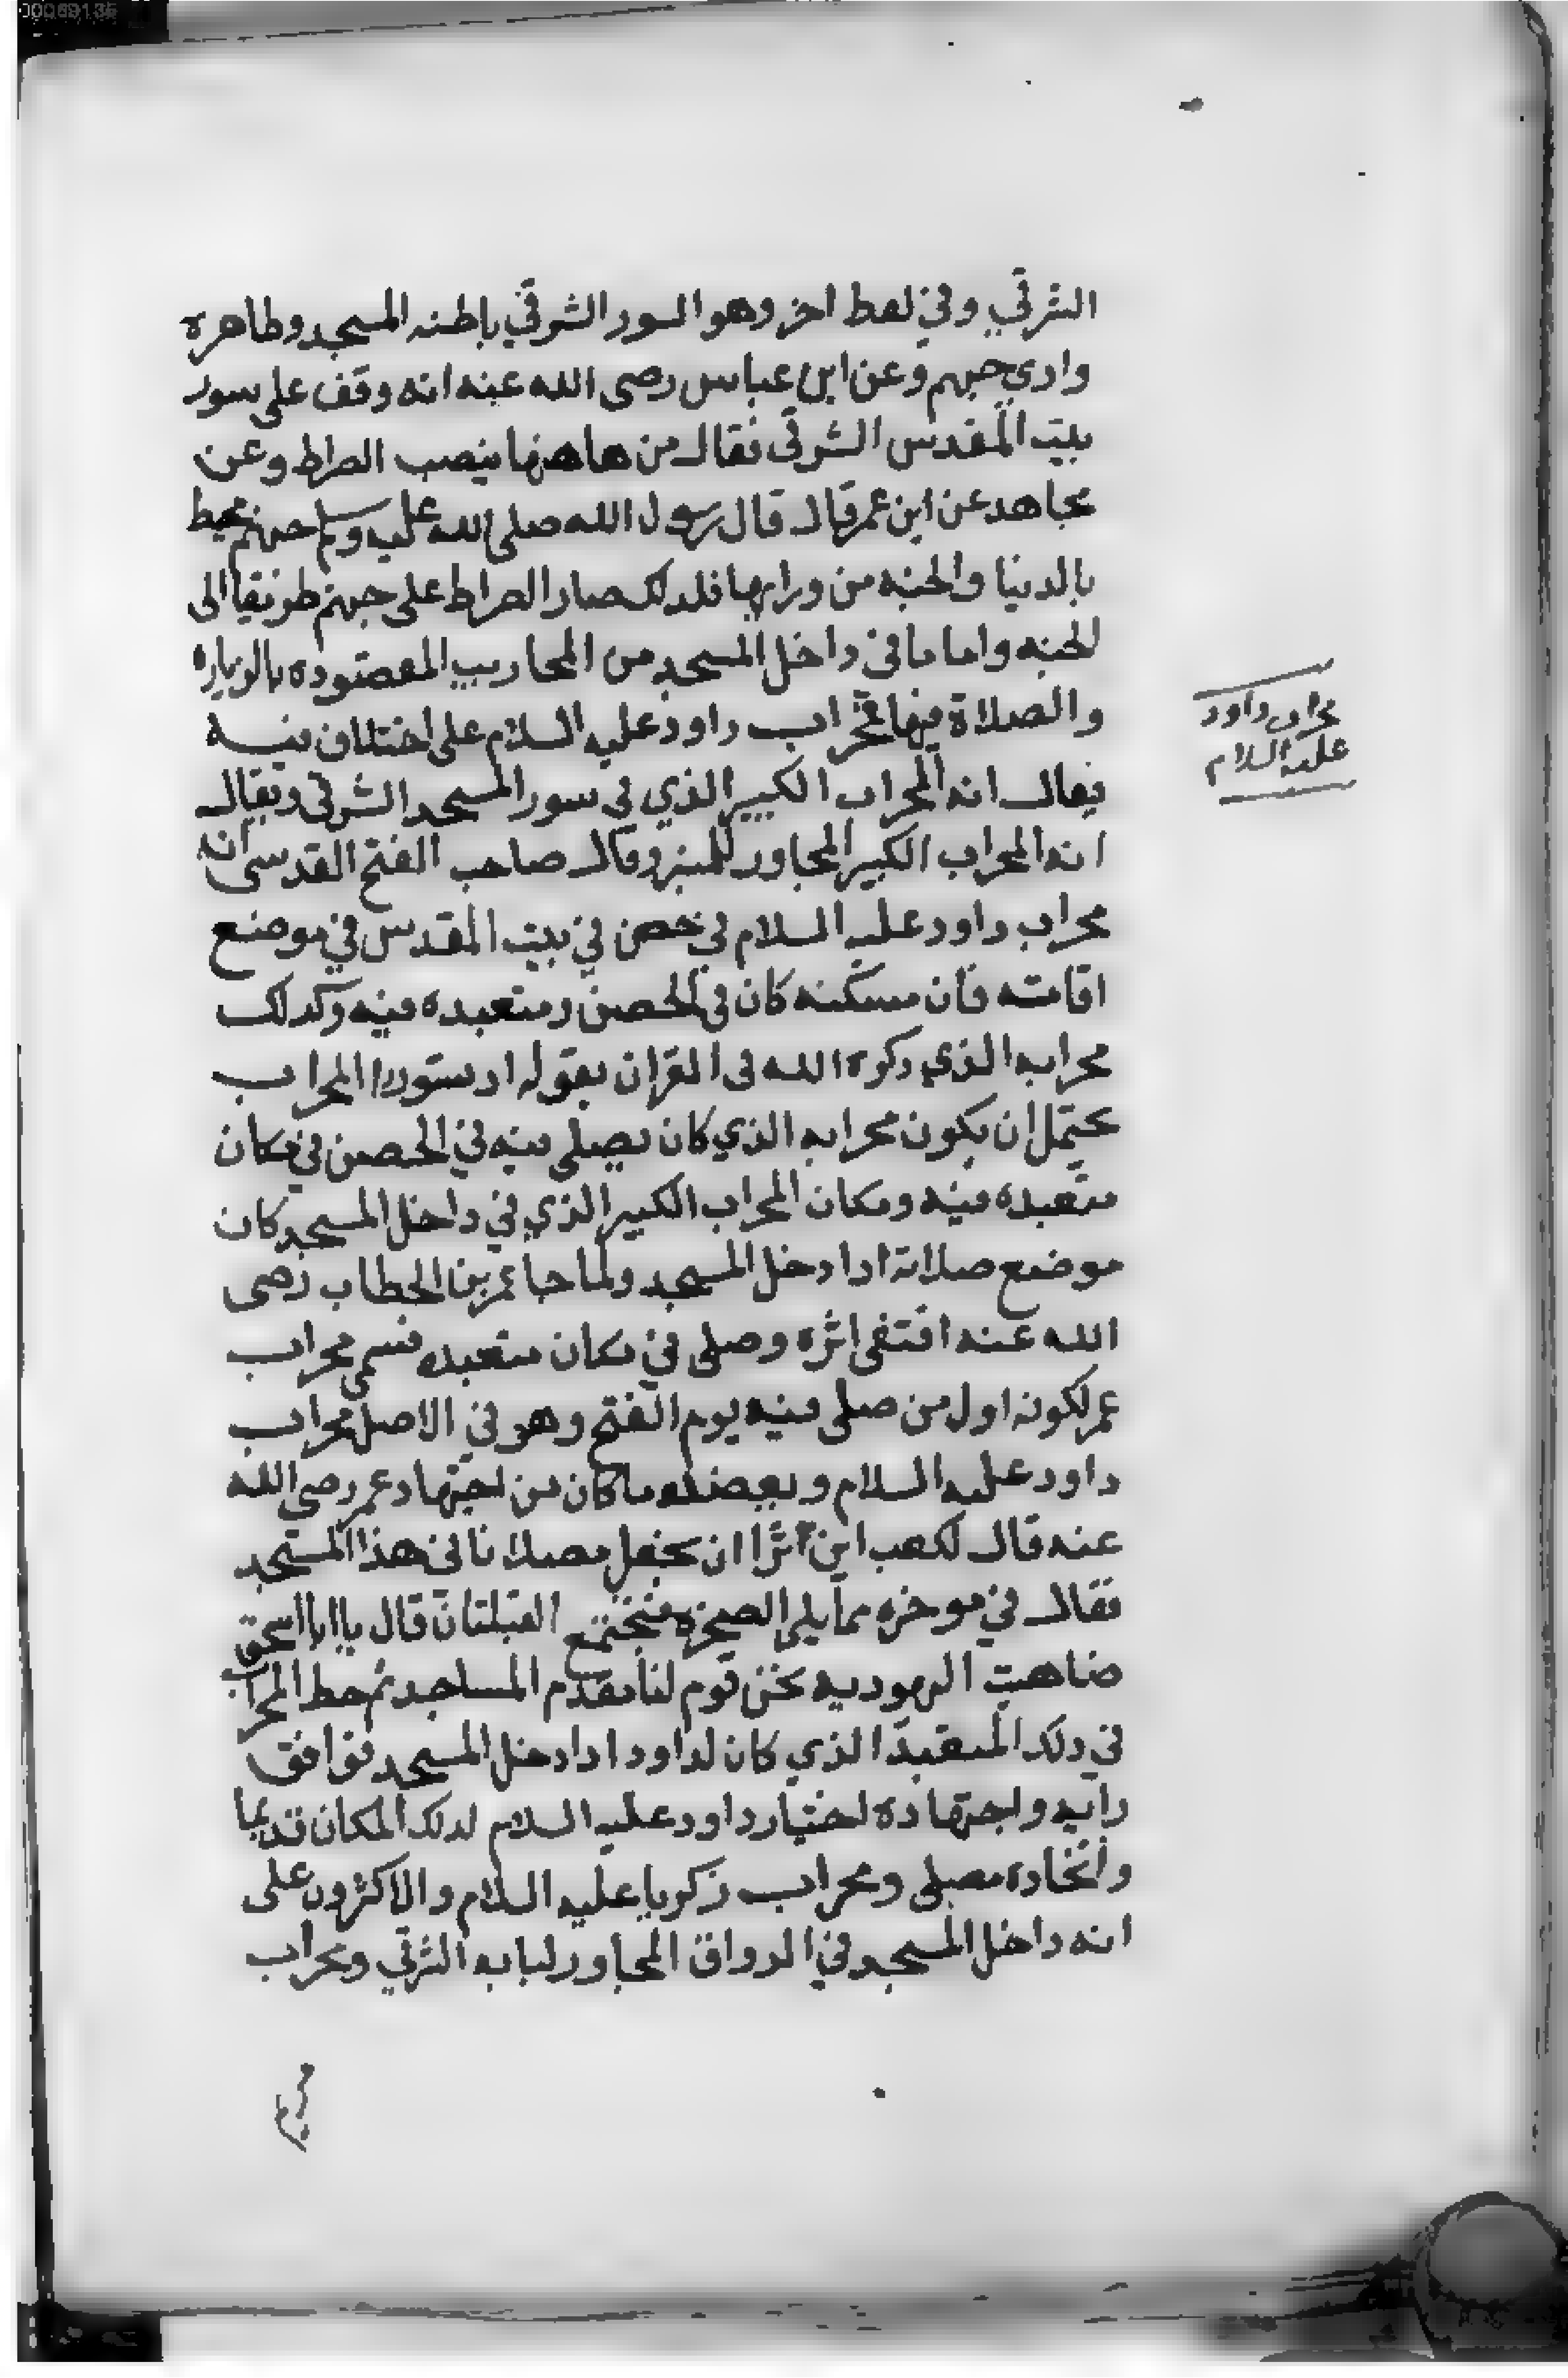 الشرقي وفي لفظ اخر وهو السور الشرقي باطنه المسجد وظاهره
وادي جهنم وعن ابن عباس رضى الله عنه انه وقف على سور
بيت المقدس الشرقى فقال من هاهنا ينصب الصراط وعن
مجاهد عن ابن عمر قال قال رسول الله صلى الله عليه وسلم جهنم محيط
بالدنيا والجنه من ورايها فلدلك صار الصراط على جهنم طريقا الى
الجنه واما ما فى داخل المسجد من المحاريب المقصوده بالزياره
والصلاة فيها فمحراب داود عليه السلام على اختلاف فيه
محراب داود
عليه السلام
فيقال انه المحراب الكبير الذي فى سور المسجد الشرقى ويقال
انه المحراب الكبير المجاور للمنبر وقال صاحب الفتح القدسى انه
محراب داود عليه السلام في حصن في بيت المقدس في موضع
اقامته فان مسكنه كان فى الحصن ومتعبده فيه وكدلك
محرابه الذي دكره الله فى القران بقوله اد تسوروا المحراب
يحتمل ان يكون محرابه الذي كان يصلى فيه في الحصن في مكان
متعبده فيه ومكان المحراب الكبير الذي في داخل المسجد كان
موضع صلاته ادا دخل المسجد ولما جا عمر بن الخطاب رضى
الله عنه اقتفى اثره وصلى في مكان متعبده فسمى محراب
عمر لكونه اول من صلى فيه يوم الفتح وهو في الاصل محراب
داود عليه السلام ويعضده ما كان من اجتهاد عمر رضي الله
عنه قال لكعب اين ترا ان نجعل مصلانا فى هذا المسجد
فقال في موخره مما يلى الصخره فتجتمع القبلتان قال يا ابا اسحق
ضاهيت اليهوديه نحن قوم لنا مقدم المساجد ثم خط المحراب
في دلك المتعبد الذي كان لداود ادا دخل المسجد فوافق
رايه واجتهاده اختيار داود عليه السلام لدلك المكان قديما
واتخاده مصلى ومحراب زكريا عليه السلام والاكثرون على
انه داخل المسجد في الرواق المجاور لبابه الشرقي ومحراب
مريم